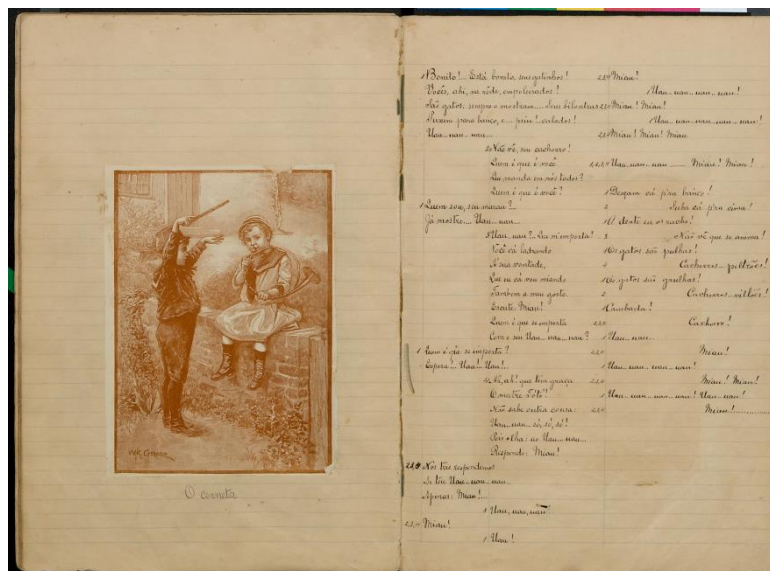 O corneta
1 Bonito!... Está bonito, seus gatinhos!
Vocês, ahi, na rêde, empoleirados!
São gatos; sempre o mostram... Seus bilontras
Fussem para baixo, e... psiu! calados!
Uau... uau... uau...
2 Não vê, seu cachorro!
Quem é que é você
Que manda em nós todos?
Quem é que é você?
1 Quem sou, seu miau?...
Já mostro... Uau... uau...
3 Uau, uau?.. Que m'importa!
Você vá ladrando
A sua vontade,
Que eu cá vou miando
Tambem a meu gosto.
Escute: Miau!
Quem é que se importa
Com o seu Uau... uau... uau?
1 Quem é que se importa?
Espera!... Uau!.. Uau!..
4 Ah, ah! que tem graça
O mestre Tótó!
Não sabe outra cousa:
Uau... uau... só, só, só!
Pois olha: ao Uau... uau...
Respondo: Miau!
2,3,4 Nós tres respondemos
Ao teu Uau... uau... uau...
Apenas: Miau!...
1 Uau, uau, uau!
2,3,4 Miau!
1 Uau!
2,3,4 Miau!
1 Uau... uau... uau... uau!
2,3,4 Miau! Miau!
Uau... uau... uau... uau... uau!
2,3,4 Miau! Miau! Miau
1,2,3,4 Uau... uau... uau... Miau! Miau!
1 Desçam cá p'ra baixo!
2 Suba cá p'ra cima!
1 A dente eu os racho!
3 Não vê que se anima!
1 Os gatos são pulhas!
4 Cachorros... poltrões!
1 Os gatos são grulhas!
2 Cachorros... vilões!
1 Cambada!
2,3,4 Cachorro!
1 Uau... uau...
2,3,4 Miau!
1 Uau... uau... uau... uau!
2,3,4 Miau! Miau!
1 Uau... uau... uau... uau! Uau... uau!
2,3,4 Miau!...